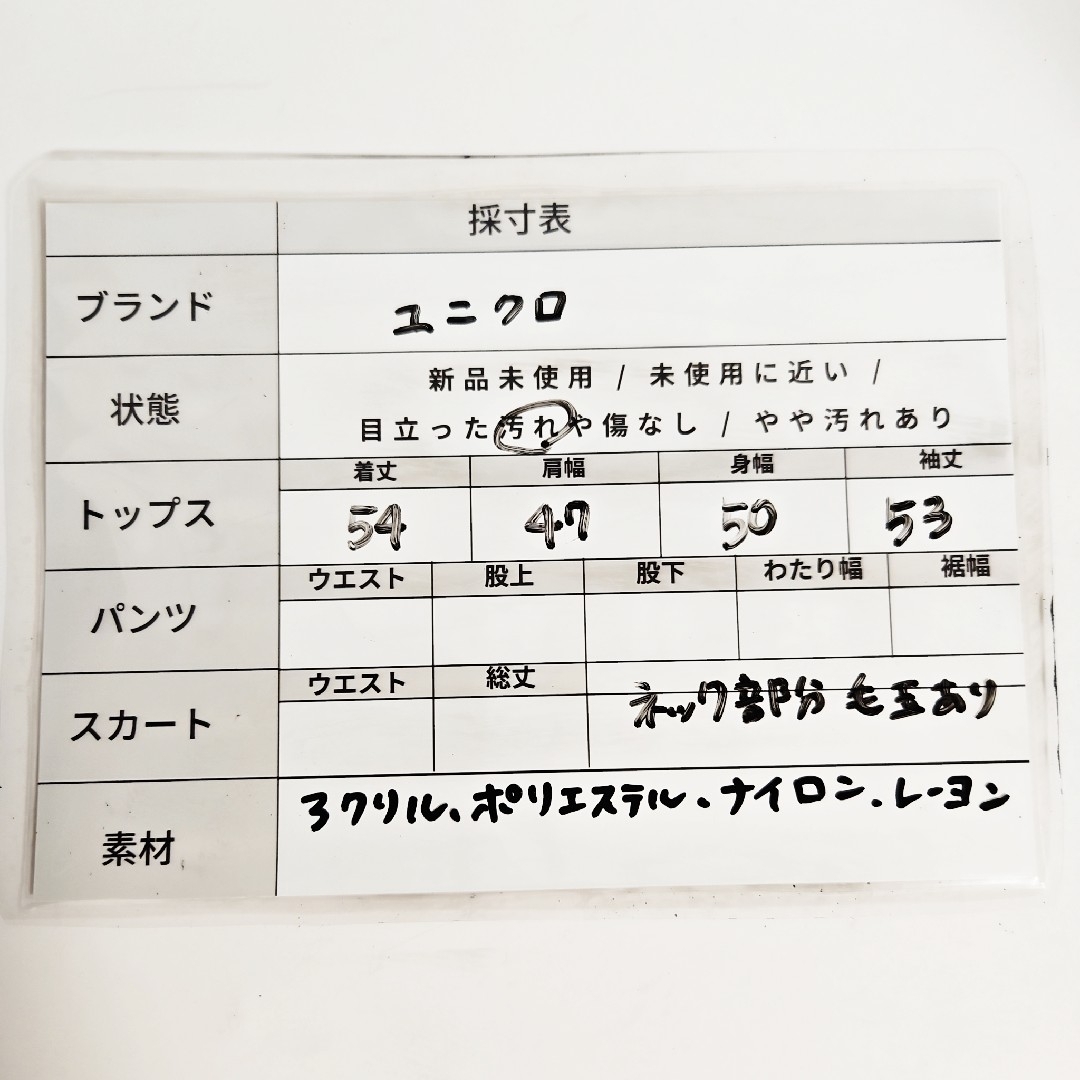 採寸表
ブランド
ユニクロ
状態
新品未使用 / 未使用に近い /
目立った汚れや傷なし / やや汚れあり
トップス
着丈 肩幅 身幅 袖丈
54 47 50 53
パンツ
ウエスト 股上 股下 わたり幅 裾幅
スカート
ウエスト 総丈
ネック部分 毛玉あり
素材
アクリル、ポリエステル、ナイロン、レーヨン